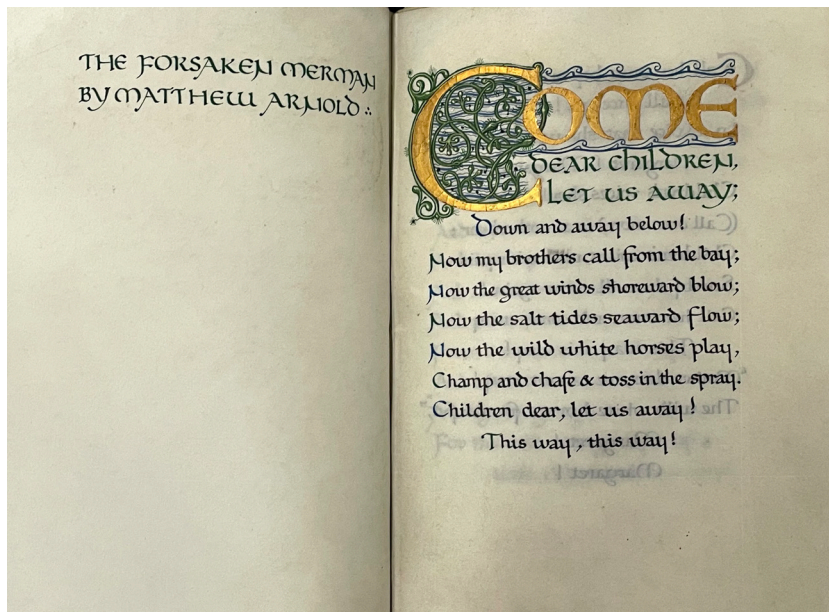 THE FORSAKEN MERMAN
BY MATTHEW ARNOLD∴
COME
DEAR CHILDREN,
LET US AWAY;
Down and away below!
Now my brothers call from the bay;
Now the great winds shoreward blow;
Now the salt tides seaward flow;
Now the wild white horses play,
Champ and chafe & toss in the spray.
Children dear, let us away!
This way, this way!